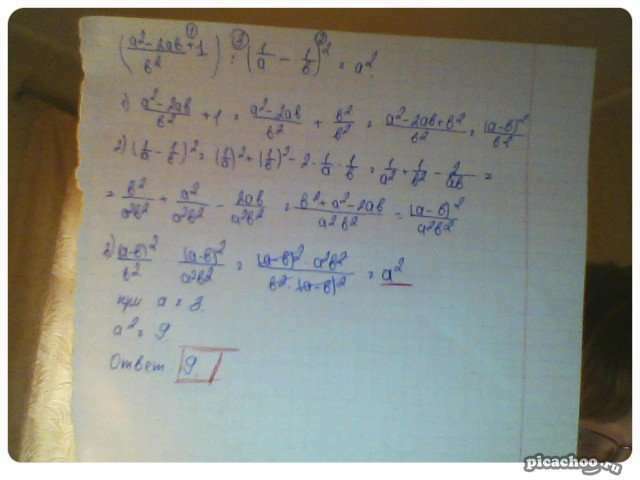 ( (a² - 2ab)/b² + 1 ) : ( 1/a - 1/b )² = a².
1) (a² - 2ab)/b² + 1 = (a² - 2ab)/b² + b²/b² = (a² - 2ab + b²)/b² = (a-b)²/b²
2) (1/a - 1/b)² = (1/a)² + (1/b)² - 2 · 1/a · 1/b = 1/a² + 1/b² - 2/ab =
= b²/a²b² + a²/a²b² - 2ab/a²b² = (b² + a² - 2ab)/a²b² = (a-b)²/a²b²
3) (a-b)²/b² (a-b)²/a²b² = (a-b)² · a²b²/b² · (a-b)² = a²
при a = 3.
a² = 9
Ответ 9.
picachoo.ru